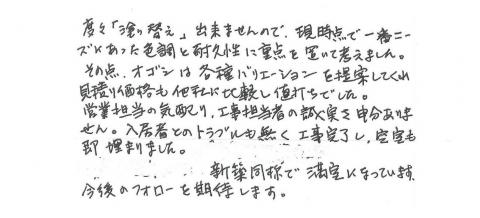 度々「塗り替え」出来ませんので、現時点で一番ニー
ズにあった色調と耐久性に重点を置いて考えました。
その点、オゴシは各種バリエーションを提案してくれ
見積り価格も他社に比較し値打ちでした。
営業担当の気配り、工事担当者の誠実さ申分ありま
せん。入居者とのトラブルも無く工事完了し、空室も
即埋まりました。
新築同様で満室になっています、
今後のフォローを期待します。